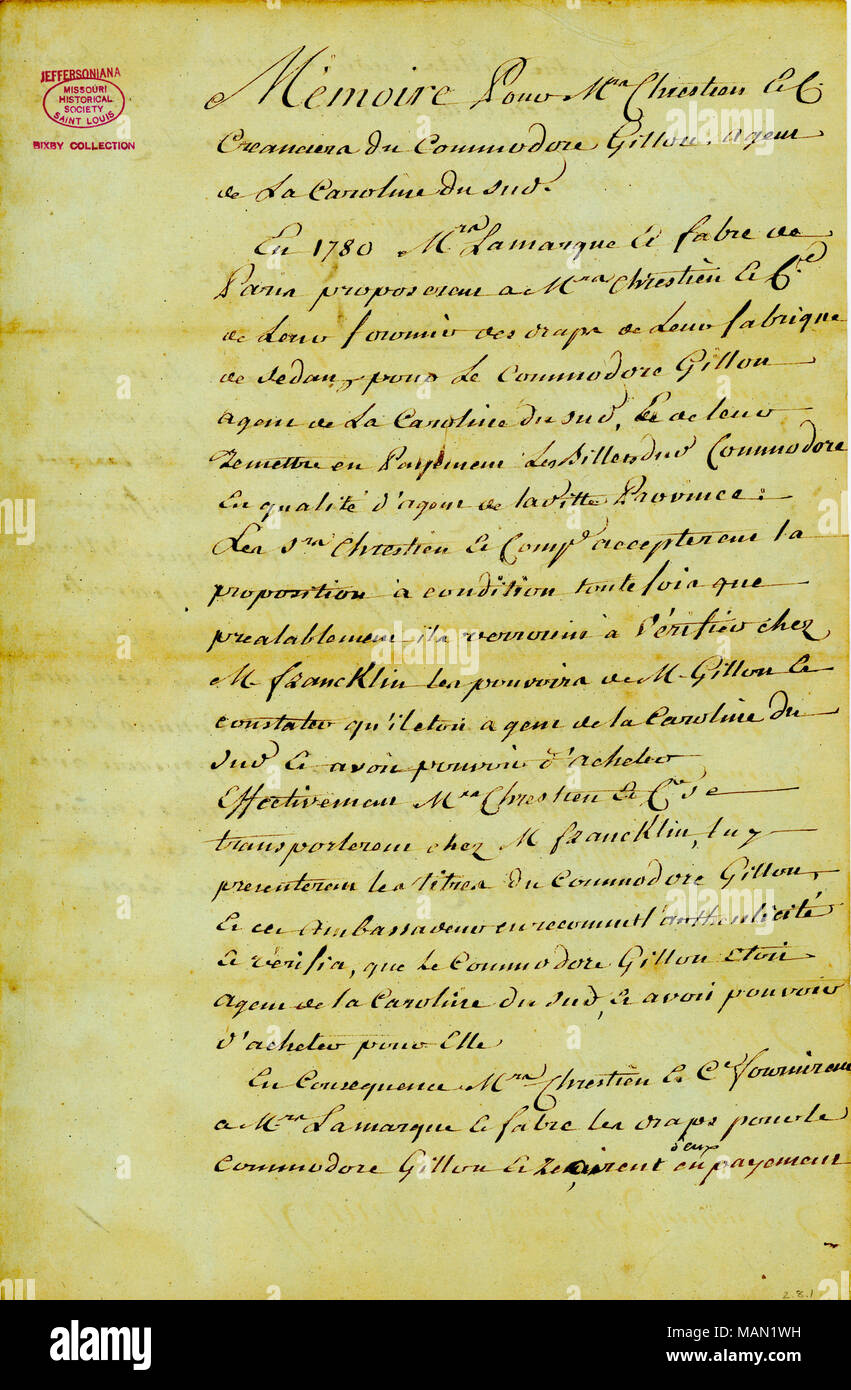 JEFFERSONIANA
MISSOURI
HISTORICAL
SOCIETY
SAINT LOUIS
BIXBY COLLECTION
Mémoire Pour Mrs Chrestien & C
Creanciers du Commodore Gillon, agent
de La Caroline du sud.
En 1780 Mrs Lamarque & fabre de
Paris proposerent a Mrs Chrestien & Cie
de Leur fournir des draps de Leur fabrique
de Sedan, pour Le Commodore Gillon
agent de La Caroline du sud, & de leur
remettre en Payement Les Billets dud Commodore
En qualité d'agent de laditte Province:
Les Srs Chrestien & Compe accepterent la
proposition à condition toute fois que
prealablement ils verroient à Vérifier chez
M francklin les pouvoirs de M. Gillon &
constater qu'il etoit agent de la Caroline du
sud & avoit pouvoir d'acheter
Effectivement Mrs Chrestien & Cie se
transporterent chez M francklin, luy
presenterent les titres du Commodore Gillon,
& cet Ambassadeur en reconnut l'authenticité
& vérifia, que le Commodore Gillon Etoit
agent de la Caroline du sud, & avoit pouvoir
d'acheter pour Elle
En Consequence Mrs Chrestien & Ce fournirent
a Mrs Lamarque & fabre les draps pour le
Commodore Gillon & reçurent d'eux en payement
2.8.1
alamy
Image ID: MAN1WH
www.alamy.com